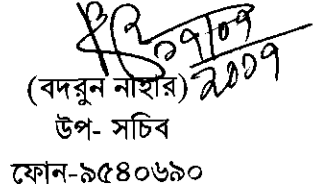 ১৭/০৭
২০০৭
(বদরুন নাহার)
উপ- সচিব
ফোন-৯৫৪০৬৯০